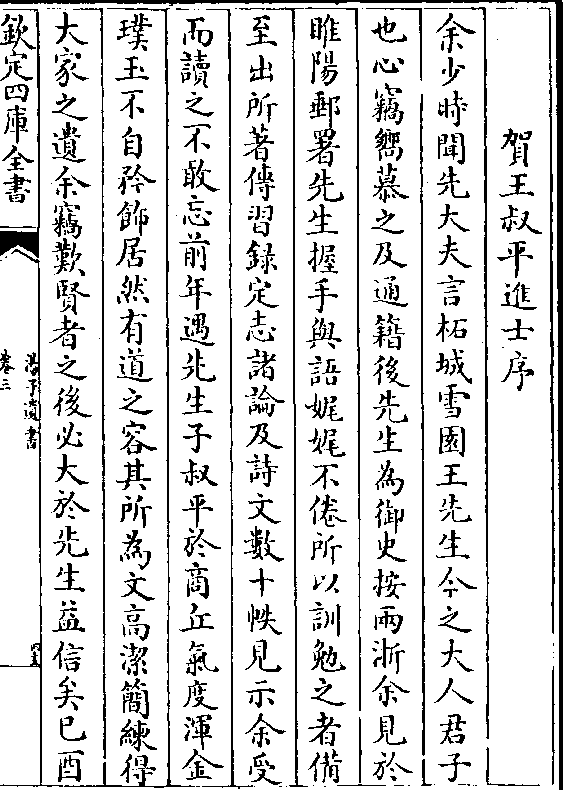 賀王叔平進士序
余少時聞先大夫言柘城雪園王先生今之大人君子
也心竊嚮慕之及通籍後先生為御史按兩浙余見於
睢陽郵署先生握手與語娓娓不倦所以訓勉之者備
至出所著傳習録定志諸論及詩文數十帙見示余受
而讀之不敢忘前年遇先生子叔平於商丘氣度渾金
璞玉不自矜飾居然有道之容其所為文高潔簡練得
大家之遺余竊歎賢者之後必大於先生益信矣已酉
欽定四庫全書
湯子遺書
卷三